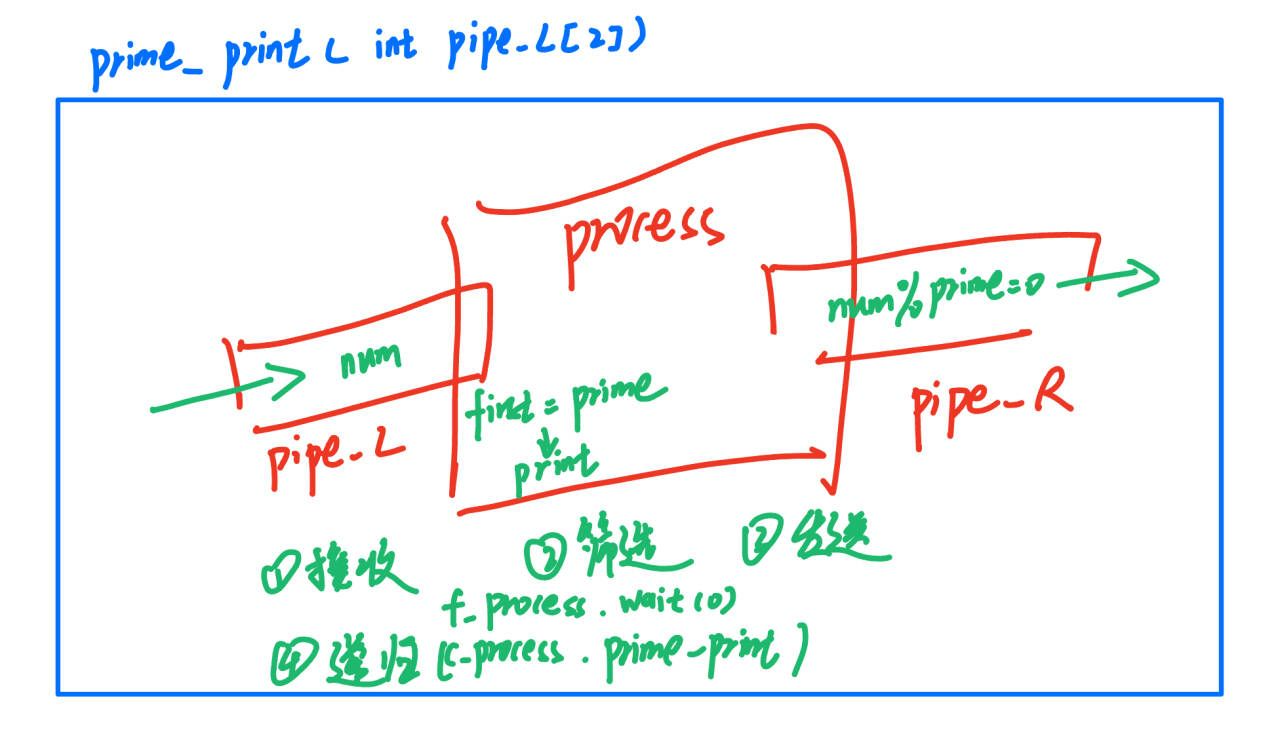 prime_print(int pipe_L[2])
process
num%prime=0
num
first = prime
pipe_R
↓
print
pipe_L
①接收 ②筛选 ③发送
f_process.wait(0)
④递归(c_process.prime_print)